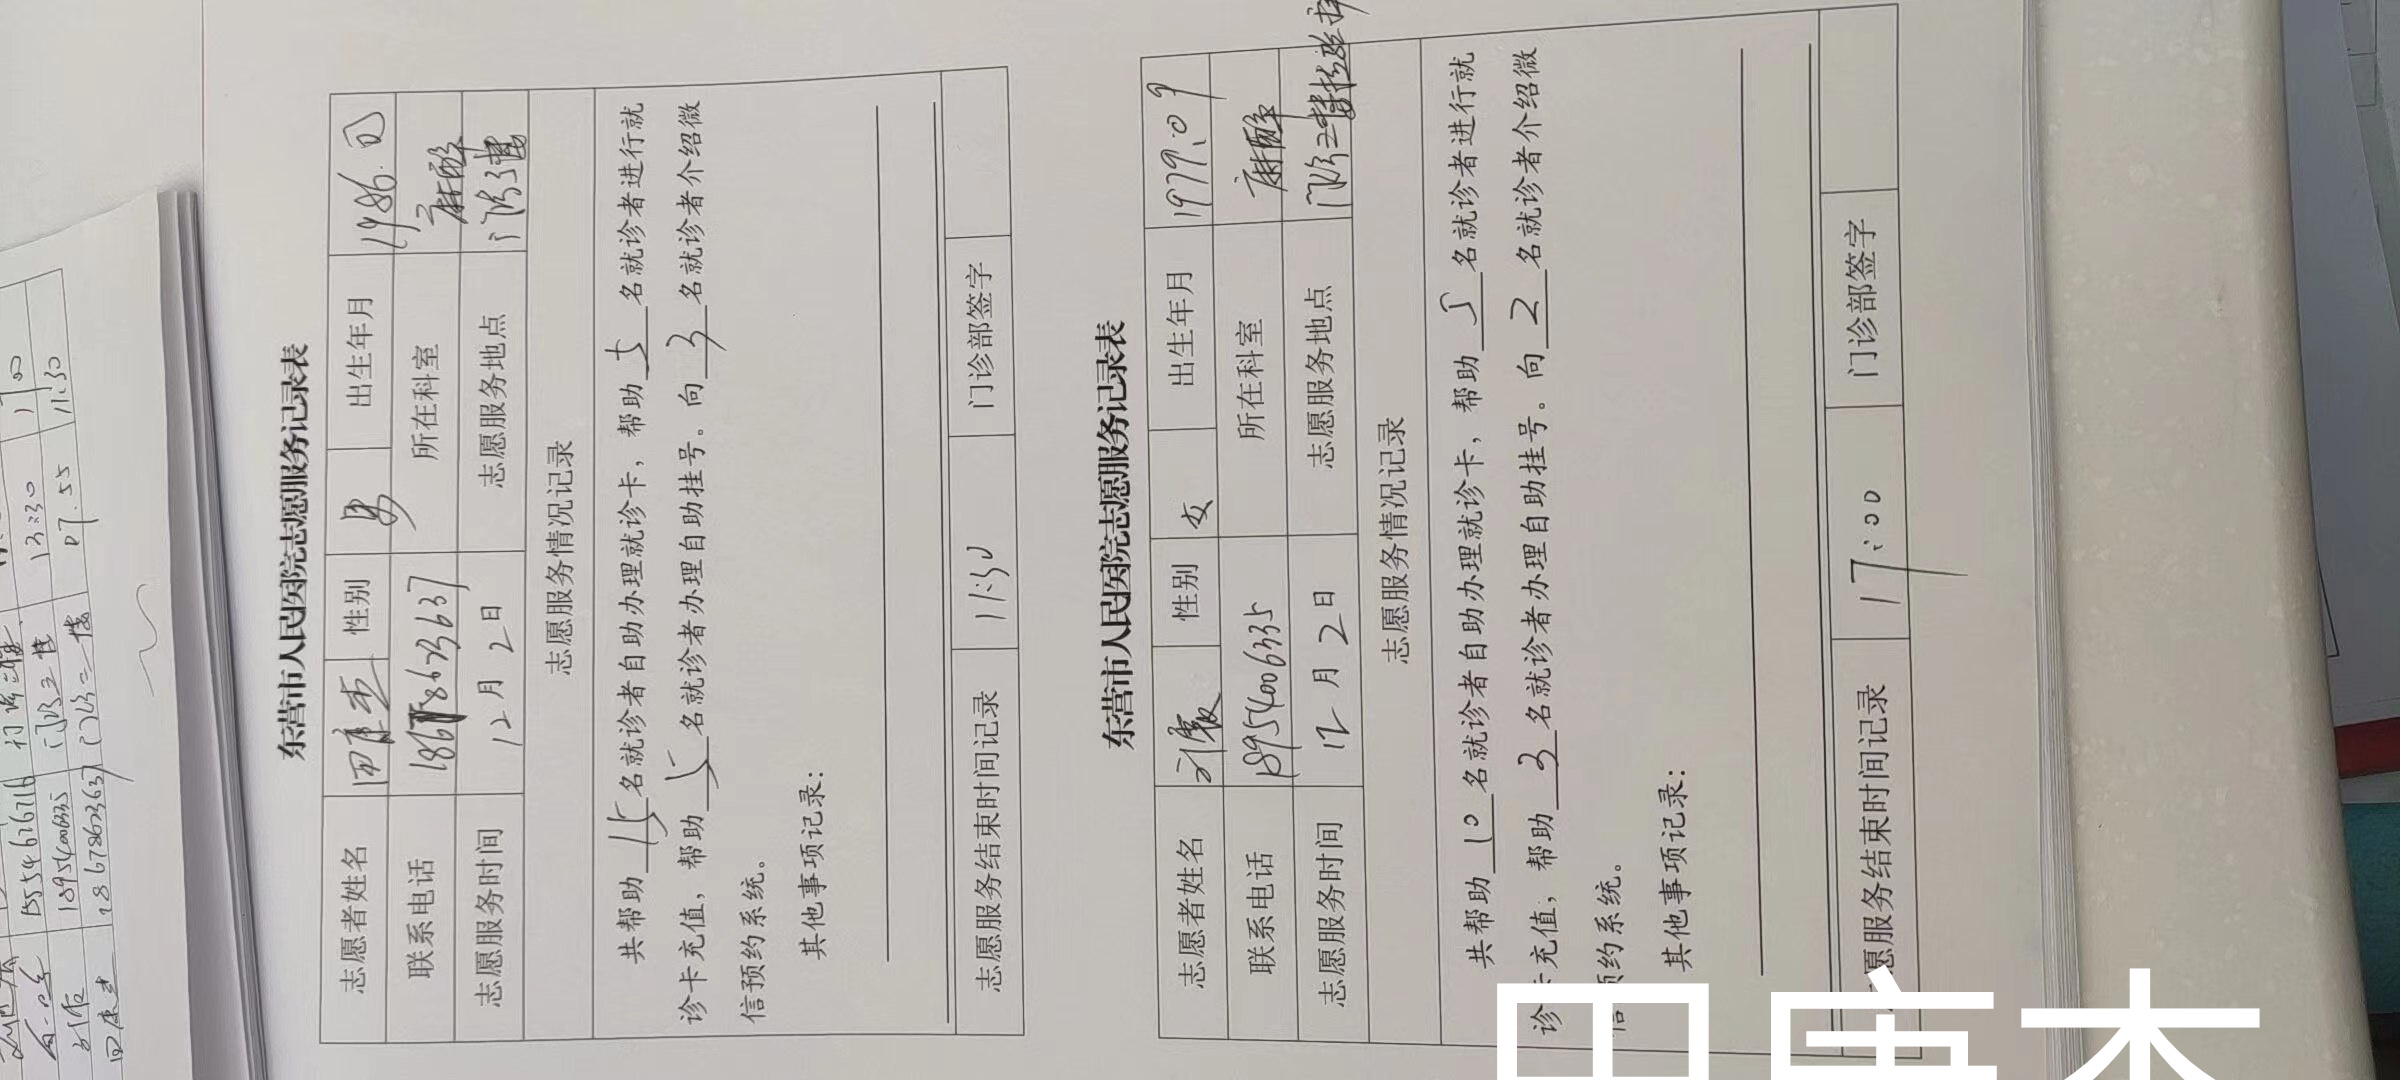 东营市人民医院志愿服务记录表
志愿者姓名 田康杰 性别 男 出生年月 1986.
联系电话 18678623637 所在科室 麻醉
志愿服务时间 12月2日 志愿服务地点 门诊三楼
志愿服务情况记录
共帮助15名就诊者自助办理就诊卡，帮助5名就诊者进行就
诊卡充值，帮助5名就诊者办理自助挂号。向3名就诊者介绍微
信预约系统。
其他事项记录：
志愿服务结束时间记录 11:30 门诊部签字
东营市人民医院志愿服务记录表
志愿者姓名 性别 女 出生年月 1979.09
联系电话 18954006335 所在科室 麻醉
志愿服务时间 12月2日 志愿服务地点 门诊二楼
志愿服务情况记录
共帮助10名就诊者自助办理就诊卡，帮助5名就诊者进行就
诊卡充值，帮助3名就诊者办理自助挂号。向2名就诊者介绍微
预约系统。
其他事项记录：
愿服务结束时间记录 17:00 门诊部签字
15554676716
18954006335 门诊三楼 13:30 17:00
田康杰 18678623637 门诊二楼 07.55 11:30
田康杰